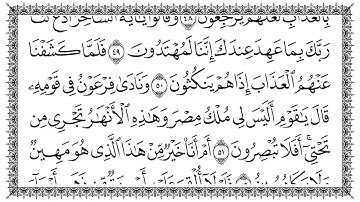 بِٱلْعَذَابِ لَعَلَّهُمْ يَرْجِعُونَ ٤٨ وَقَالُوا۟ يَٰٓأَيُّهَ ٱلسَّاحِرُ ٱدْعُ لَنَا
رَبَّكَ بِمَا عَهِدَ عِندَكَ إِنَّنَا لَمُهْتَدُونَ ٤٩ فَلَمَّا كَشَفْنَا
عَنْهُمُ ٱلْعَذَابَ إِذَا هُمْ يَنكُثُونَ ٥٠ وَنَادَىٰ فِرْعَوْنُ فِى قَوْمِهِۦ
قَالَ يَٰقَوْمِ أَلَيْسَ لِى مُلْكُ مِصْرَ وَهَٰذِهِ ٱلْأَنْهَٰرُ تَجْرِى مِن
تَحْتِىٓ أَفَلَا تُبْصِرُونَ ٥١ أَمْ أَنَا۠ خَيْرٌ مِّنْ هَٰذَا ٱلَّذِى هُوَ مَهِينٌ
وَلَا يَكَادُ يُبِينُ ٥٢ فَلَوْلَآ أُلْقِىَ عَلَيْهِ